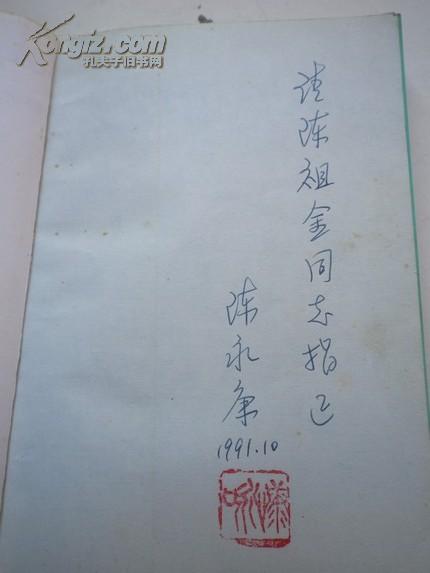 Kongfz.com
孔夫子旧书网
请陈祖金同志指正
陈永康
1991.10